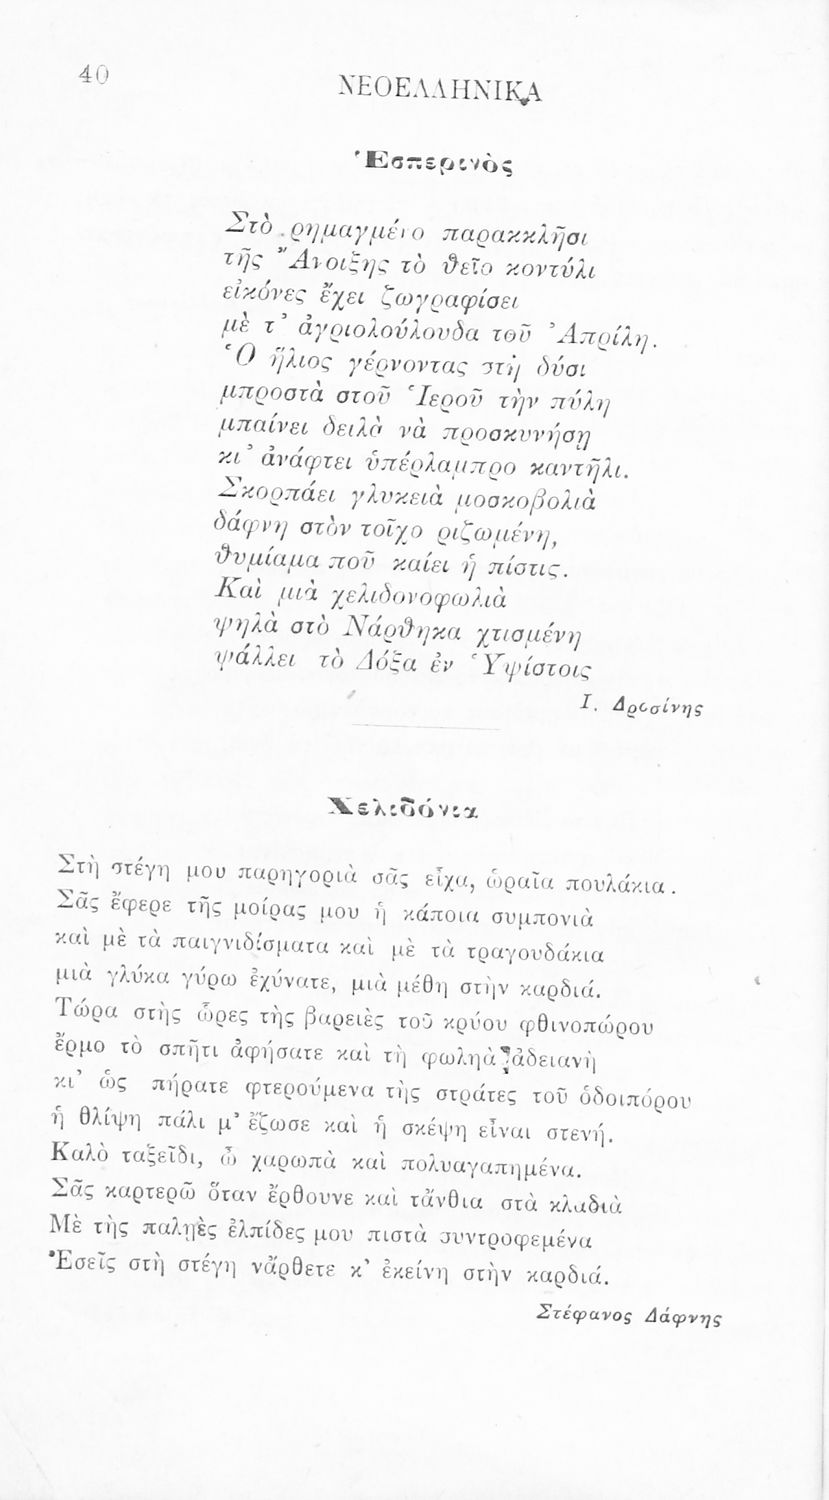 40
ΝΕΟΕΛΛΗΝΙΚΑ
Ἑσπερινὸς
Στὸ ρημαγμένο παρακκλῆσι
τῆς Ἄνοιξης τὸ θεῖο κοντύλι
εἰκόνες ἔχει ζωγραφίσει
μὲ τ’ ἀγριολούλουδα τοῦ Ἀπρίλη.
Ὁ ἥλιος γέρνοντας στὴ δύσι
μπροστὰ στοῦ Ἱεροῦ τὴν πύλη
μπαίνει δειλὰ νὰ προσκυνήσῃ
κι’ ἀνάφτει ὑπέρλαμπρο καντῆλι.
Σκορπάει γλυκειὰ μοσκοβολιὰ
δάφνη στὸν τοῖχο ριζωμένη,
θυμίαμα ποῦ καίει ἡ πίστις.
Καὶ μιὰ χελιδονοφωλιὰ
ψηλὰ στὸ Νάρθηκα χτισμένη
ψάλλει τὸ Δόξα ἐν Ὑψίστοις
Ι. Δροσίνης
Χελιδόνια
Στὴ στέγη μου παρηγοριὰ σᾶς εἶχα, ὡραῖα πουλάκια.
Σᾶς ἔφερε τῆς μοίρας μου ἡ κάποια συμπονιὰ
καὶ μὲ τὰ παιγνιδίσματα καὶ μὲ τὰ τραγουδάκια
μιὰ γλύκα γύρω ἐχύνατε, μιὰ μέθη στὴν καρδιά.
Τώρα στὴς ὧρες τὴς βαρειὲς τοῦ κρύου φθινοπώρου
ἔρμο τὸ σπῆτι ἀφήσατε καὶ τὴ φωληὰ ἀδειανὴ
κι’ ὡς πήρατε φτερούμενα τὴς στράτες τοῦ ὁδοιπόρου
ἡ θλίψη πάλι μ’ ἔζωσε καὶ ἡ σκέψη εἶναι στενή.
Καλὸ ταξεῖδι, ὦ χαρωπὰ καὶ πολυαγαπημένα.
Σᾶς καρτερῶ ὅταν ἔρθουνε καὶ τἄνθια στὰ κλαδιὰ
Μὲ τὴς παληὲς ἐλπίδες μου πιστὰ συντροφεμένα
Ἐσεῖς στὴ στέγη νἄρθετε κ’ ἐκείνη στὴν καρδιά.
Στέφανος Δάφνης